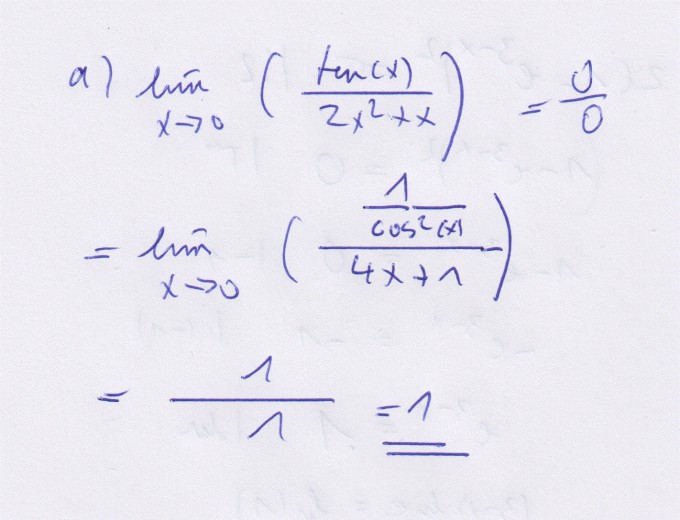 a) lim x→0 ( tan(x) / (2x² + x) ) = 0/0
= lim x→0 ( (1 / cos²(x)) / (4x + 1) )
= 1/1 = 1